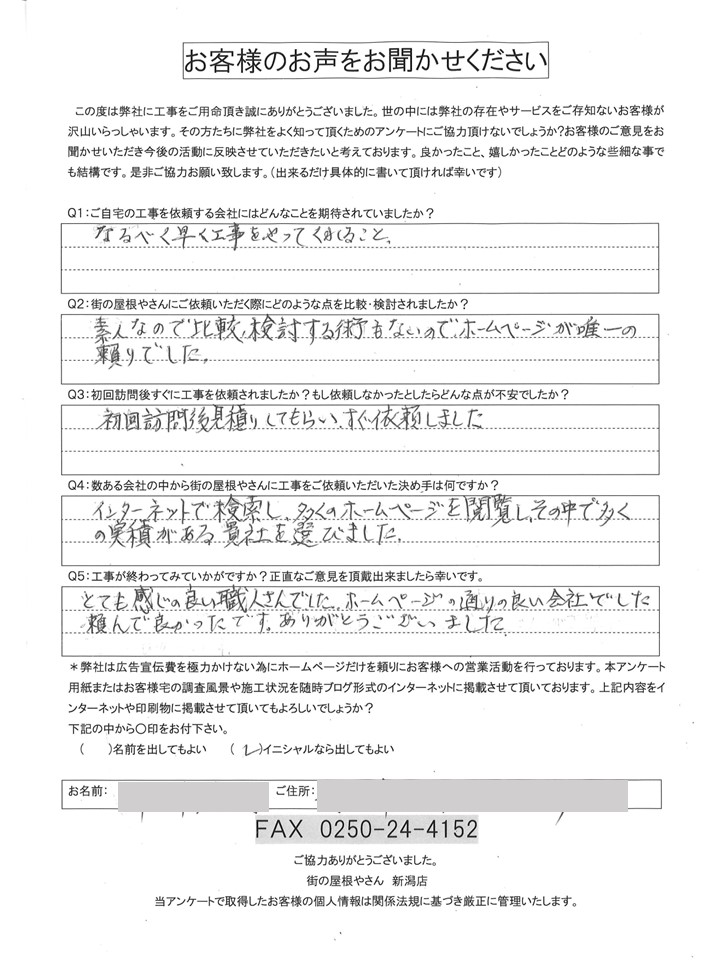 お客様のお声をお聞かせください
この度は弊社に工事をご用命頂き誠にありがとうございました。世の中には弊社の存在やサービスをご存知ないお客様が
沢山いらっしゃいます。その方たちに弊社をよく知って頂くためのアンケートにご協力頂けないでしょうか?お客様のご意見をお
聞かせいただき今後の活動に反映させていただきたいと考えております。良かったこと、嬉しかったことどのような些細な事で
も結構です。是非ご協力お願い致します。(出来るだけ具体的に書いて頂ければ幸いです)
Q1:ご自宅の工事を依頼する会社にはどんなことを期待されていましたか?
なるべく早く工事をやってくれること、
Q2:街の屋根やさんにご依頼いただく際にどのような点を比較・検討されましたか?
素人なので比較、検討する術もないので、ホームページが唯一の
頼りでした。
Q3:初回訪問後すぐに工事を依頼されましたか?もし依頼しなかったとしたらどんな点が不安でしたか?
初回訪問後見積りしてもらい、すぐ依頼しました
Q4:数ある会社の中から街の屋根やさんに工事をご依頼いただいた決め手は何ですか?
インターネットで検索し、多くのホームページを閲覧し、その中で多く
の実積がある貴社を選びました。
Q5:工事が終わってみていかがですか?正直なご意見を頂戴出来ましたら幸いです。
とても感じの良い職人さんでした。ホームページの通りの良い会社でした
頼んで良かったです。ありがとうございました
*弊社は広告宣伝費を極力かけない為にホームページだけを頼りにお客様への営業活動を行っております。本アンケート
用紙またはお客様宅の調査風景や施工状況を随時ブログ形式のインターネットに掲載させて頂いております。上記内容をイ
ンターネットや印刷物に掲載させて頂いてもよろしいでしょうか?
下記の中から〇印をお付下さい。
( )名前を出してもよい (レ)イニシャルなら出してもよい
お名前: ご住所:
FAX 0250-24-4152
ご協力ありがとうございました。
街の屋根やさん 新潟店
当アンケートで取得したお客様の個人情報は関係法規に基づき厳正に管理いたします。